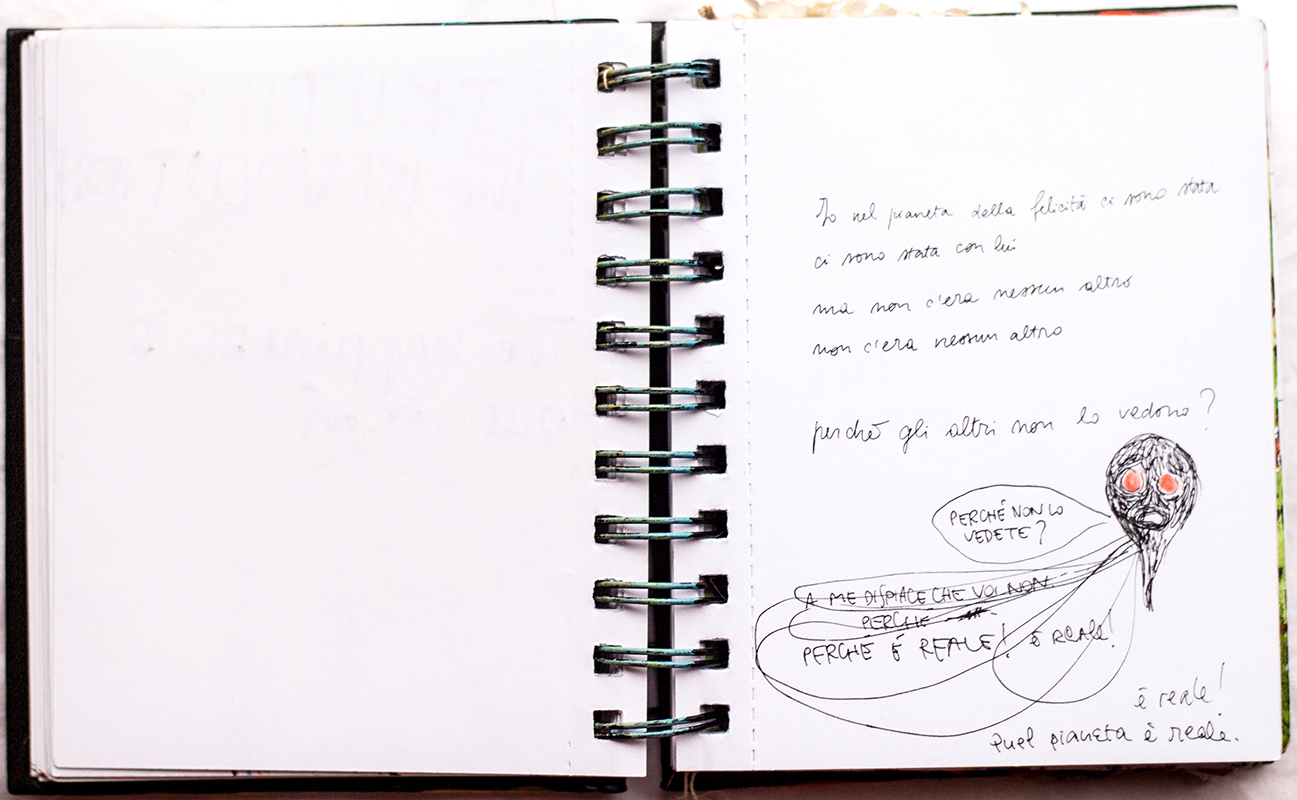 Io nel pianeta della felicità ci sono stata
ci sono stata con lui
ma non c'era nessun altro
non c'era nessun altro
perché gli altri non lo vedono?
PERCHÉ NON LO
VEDETE?
A ME DISPIACE CHE VOI NON
PERCHÉ
PERCHÉ É REALE! É REALE!
è reale!
quel pianeta è reale.